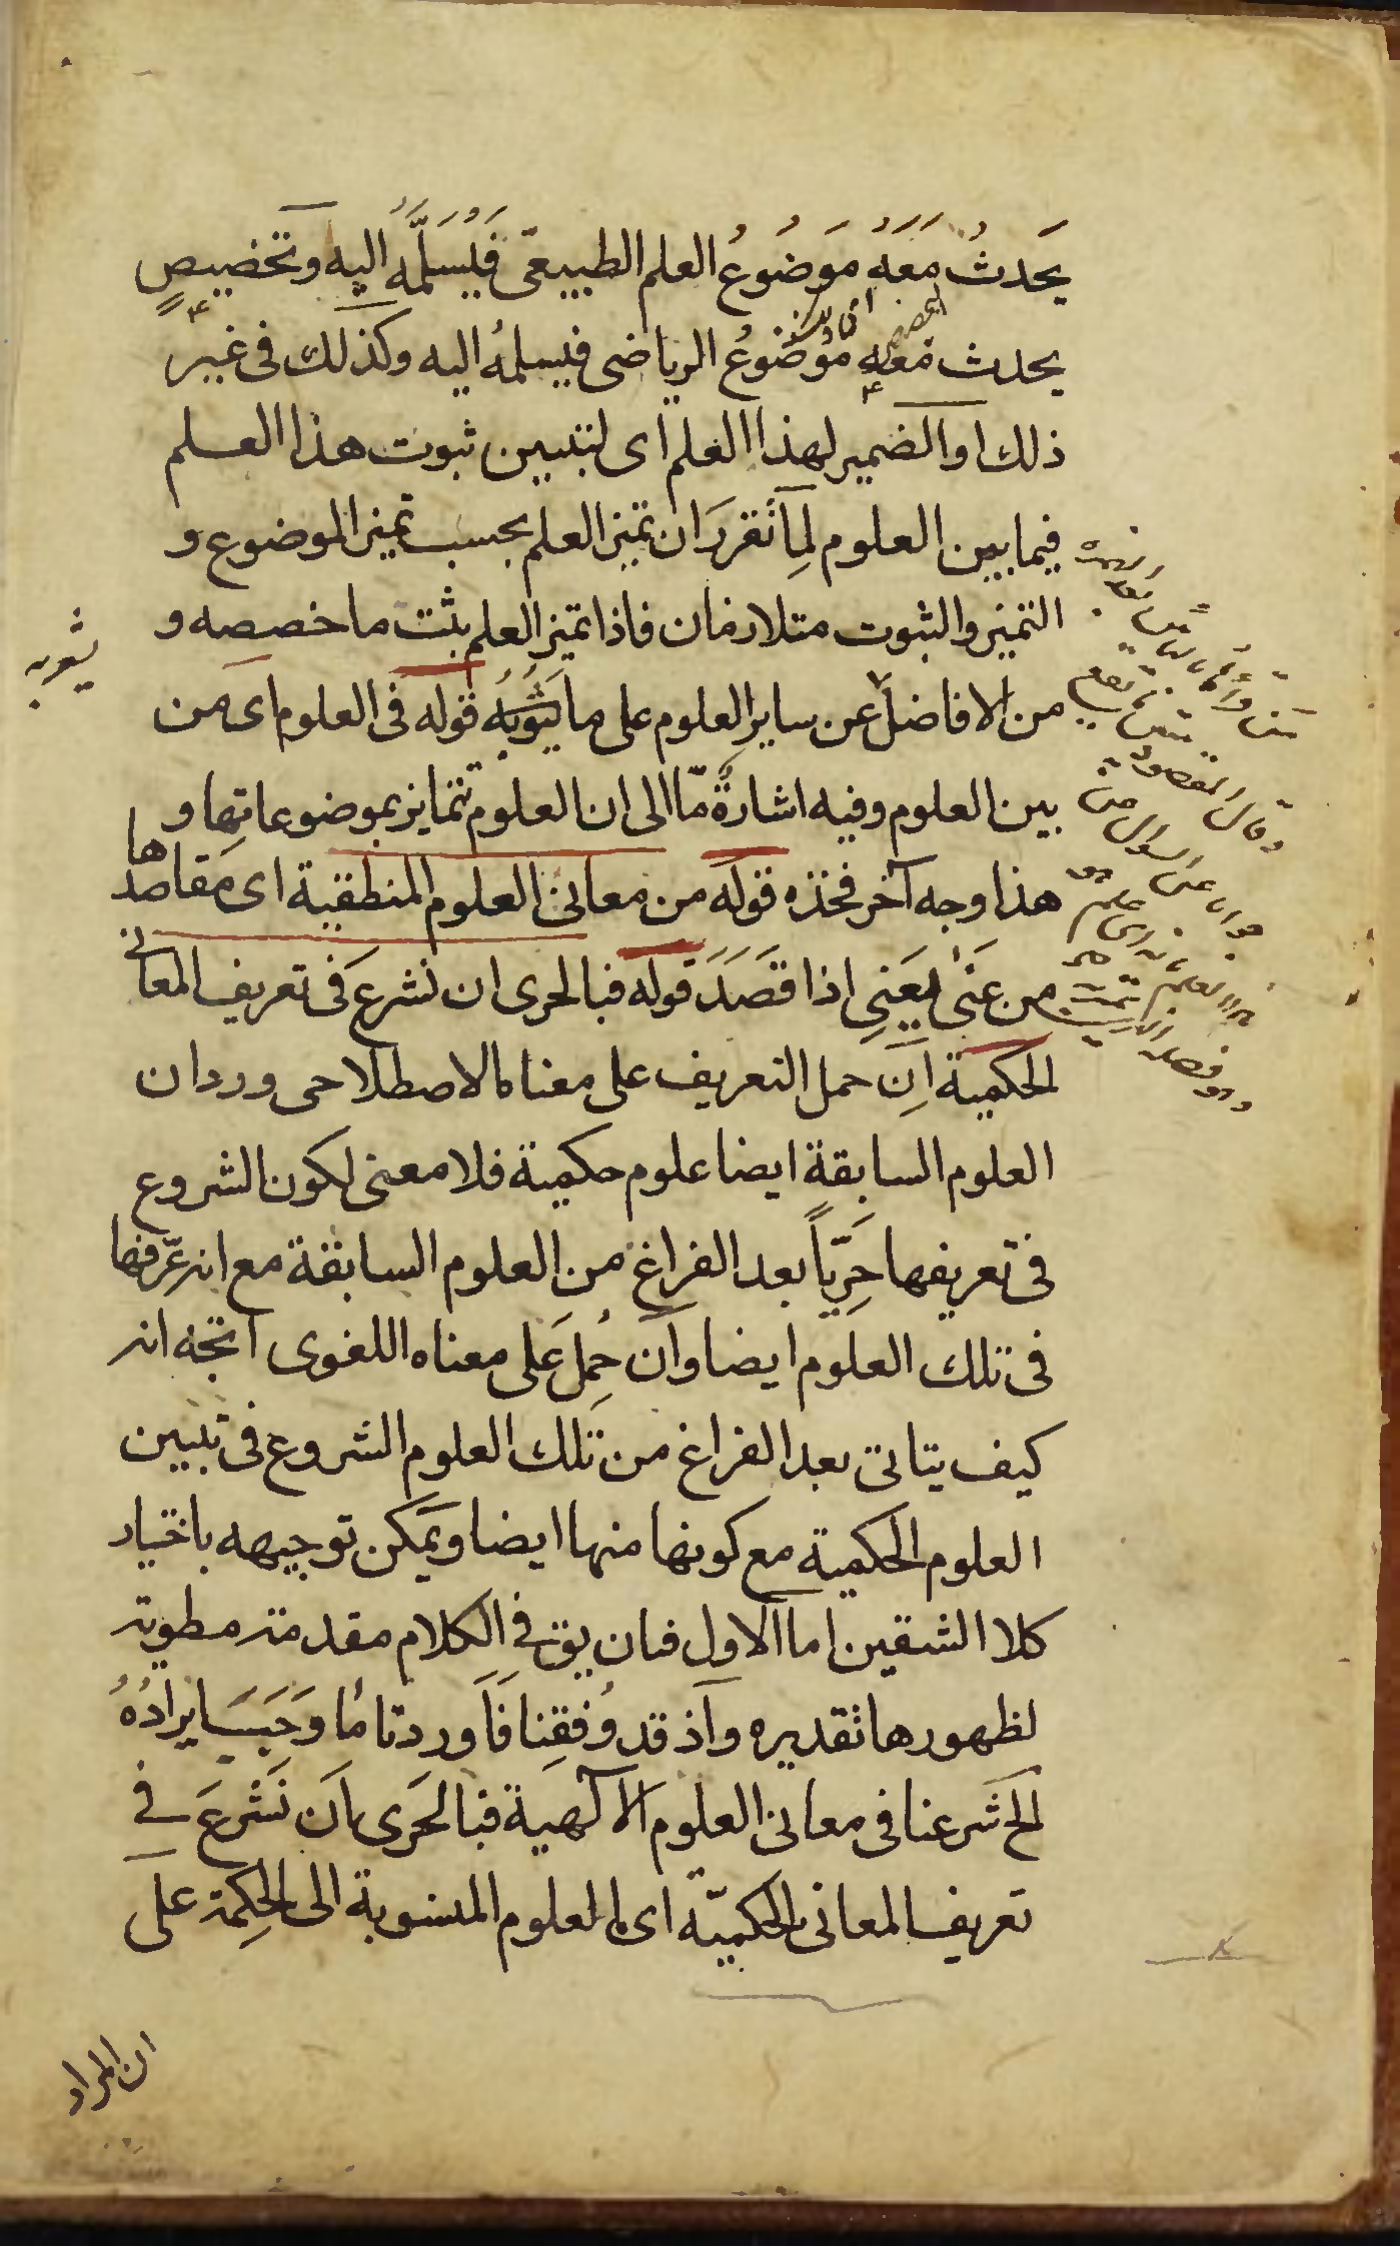 يَحدثُ مَعَهُ مَوضُوعُ العلم الطبيعىّ فَيُسَلّمُه اليه وتخصيصٍ
يحدث مَعَهُ مَوضُوعُ الرياضى فيسلمُه اليه وكذلك فى غير
ذلك اوالضمير لهذا العلم اى لتبيين ثبوت هذا العلم
فيما بين العلوم لِما تقررَ ان تميز العلم بحسب تميز الموضوع و
التميز والثبوت متلازمان فاذا تميز العلم بثت ما خصصه و
من الافاضل عن ساير العلوم على ما يَثوبُه قوله فى العلوم اى من
بين العلوم وفيه اشارةٌ مّا الى ان العلوم تتمايز بموضوعاتِها و
هذا وجه آخر فخذه قوله من معانى العلوم المنطقية اى مقاصدها
من عَنَىٰ يَعَنِى اذا قَصَدَ قوله فبالحرى ان نشرعَ فى تعريف المعانى
الحكمية اِن حمل التعريف على معناه الاصطلاحى ورد ان
العلوم السابقة ايضا علوم حكمية فلا معنى لكون الشروع
فى تعريفها حَرِيّاً بعد الفراغ من العلوم السابقة مع انه عرّفها
فى تلك العلوم ايضا وان حُمِل عَلى معناه اللغوى اتجه انه
كيف يتاتى بعد الفراغ من تلك العلوم الشروع فى تبيين
العلوم الحكمية مع كونها منها ايضا ويمكن توجيهه باختيار
كلا الشقين اما الاول فبان يق فى الكلام مقدمة مطوية
لظهورها تقديره واذ قد وُفقِنا فَاَوردنا مُا وَجَبَ ايرادُهُ
الخ شَرعنا فى معانى العلوم الآلهية فبالحَرى اَن نَشْرعَ فى
تعريف المعانى الحكميّه اى العلوم المنسوبة الى الحِكمة على
ان المراد